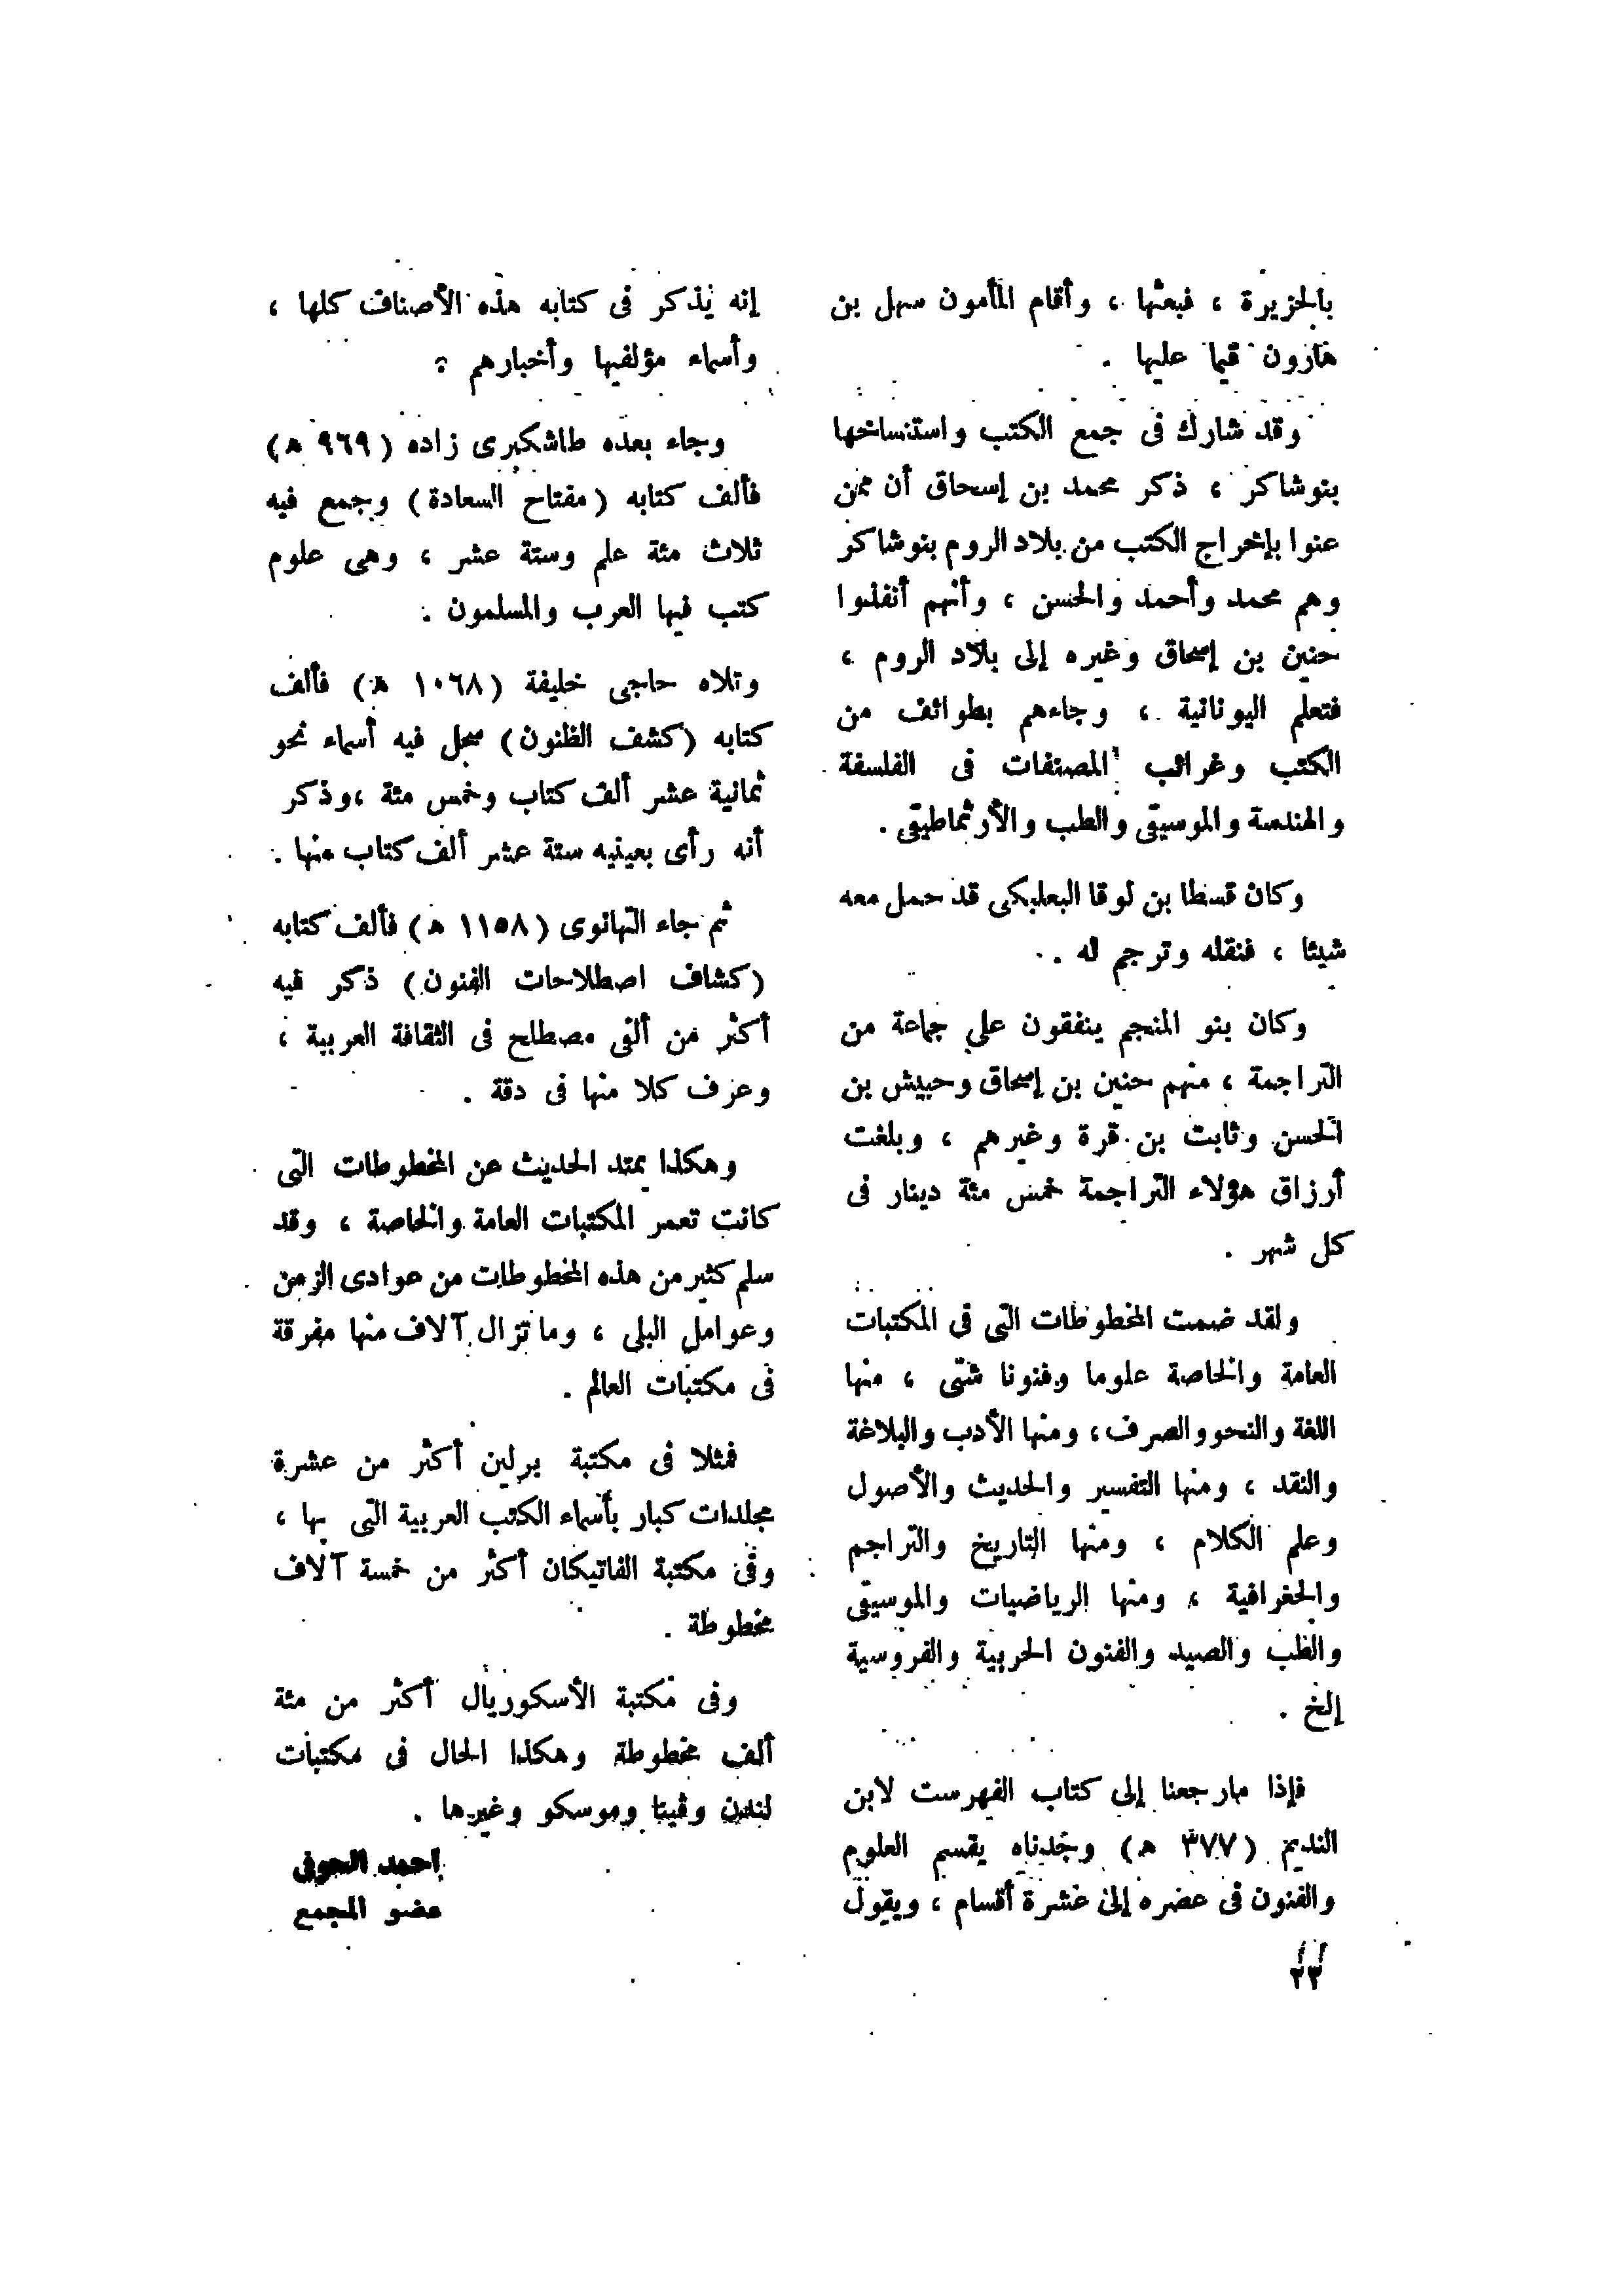 بالجزيرة ، فبعثها ، وأقام المأمون سهل بن
هارون قيما عليها .
وقد شارك فى جمع الكتب واستنساخها
بنوشاكر ، ذكر محمد بن إسحاق أن ممن
عنوا بإخراج الكتب من بلاد الروم بنوشاكر
وهم محمد وأحمد والحسن ، وأنهم أنفذوا
حنين بن إسحاق وغيره إلى بلاد الروم ،
فتعلم اليونانية ، وجاءهم بطوائف من
الكتب وغرائب المصنفات فى الفلسفة
والهندسة والموسيقى والطب والأرثماطيقى .
وكان قسطا بن لوقا البعلبكى قد حمل معه
شيئا ، فنقله وترجم له .
وكان بنو المنجم ينفقون على جماعة من
التراجمة ، منهم حنين بن إسحاق وحبيش بن
الحسن وثابت بن قرة وغيرهم ، وبلغت
أرزاق هؤلاء التراجمة خمس مئة دينار فى
كل شهر .
ولقد ضمت المخطوطات التى فى المكتبات
العامة والخاصة علوما وفنونا شتى ، منها
اللغة والنحو والصرف ، ومنها الأدب والبلاغة
والنقد ، ومنها التفسير والحديث والأصول
وعلم الكلام ، ومنها التاريخ والتراجم
والجغرافية ، ومنها الرياضيات والموسيقى
والطب والصيد والفنون الحربية والفروسية
إلخ .
فإذا مارجعنا إلى كتاب الفهرست لابن
النديم ( ٣٧٧ ه) وجدناه يقسم العلوم
والفنون فى عصره إلى عشرة أقسام ، ويقول
إنه يذكر فى كتابه هذه الأصناف كلها ،
وأسماء مؤلفيها وأخبارهم .
وجاء بعده طاشكبرى زاده ( ٩٦٩ ه)
فألف كتابه (مفتاح السعادة) وجمع فيه
ثلاث مئة علم وستة عشر ، وهى علوم
كتب فيها العرب والمسلمون .
وتلاه حاجى خليفة (١٠٦٨ ه) فألف
كتابه (كشف الظنون) سجل فيه أسماء نحو
ثمانية عشر ألف كتاب وخمس مئة ، وذكر
أنه رأى بعينيه ستة عشر ألف كتاب منها .
ثم جاء التهانوى (١١٥٨ ه) فألف كتابه
(كشاف اصطلاحات الفنون) ذكر فيه
أكثر من ألفى مصطلح فى الثقافة العربية ،
وعرف كلا منها فى دقة .
وهكذا يمتد الحديث عن المخطوطات التى
كانت تعمر المكتبات العامة والخاصة ، وقد
سلم كثير من هذه المخطوطات من عوادى الزمن
وعوامل البلى ، وما تزال آلاف منها مفرقة
فى مكتبات العالم .
فمثلا فى مكتبة برلين أكثر من عشرة
مجلدات كبار بأسماء الكتب العربية التى بها ،
وفى مكتبة الفاتيكان أكثر من خمسة آلاف
مخطوطة .
وفى مكتبة الأسكوريال أكثر من مئة
ألف مخطوطة وهكذا الحال فى مكتبات
لندن وڤينا وموسكو وغيرها .
احمد الحوفى
عضو المجمع
٢٣